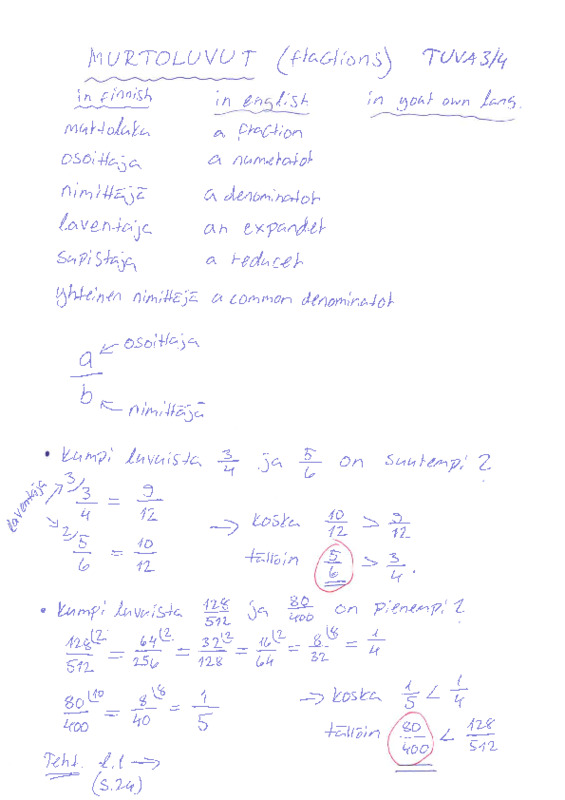 MURTOLUVUT (fractions) TUVA3/4
in finnish in english in your own lang.
murtoluku a fraction
osoittaja a numerator
nimittäjä a denominator
laventaja an expander
supistaja a reducer
yhteinen nimittäjä a common denominator
a ← osoittaja
b ← nimittäjä
• Kumpi luvuista 3/4 ja 5/6 on suurempi?
laventaja
3/ 3/4 = 9/12
2/ 5/6 = 10/12
→ koska 10/12 > 9/12
tällöin 5/6 > 3/4.
• Kumpi luvuista 128/512 ja 80/400 on pienempi?
128/512 (2 = 64/256 (2 = 32/128 (2 = 16/64 (2 = 8/32 (8 = 1/4
80/400 (10 = 8/40 (8 = 1/5
→ koska 1/5 < 1/4
tällöin 80/400 < 128/512
Teht. 1.1 →
(s.24)